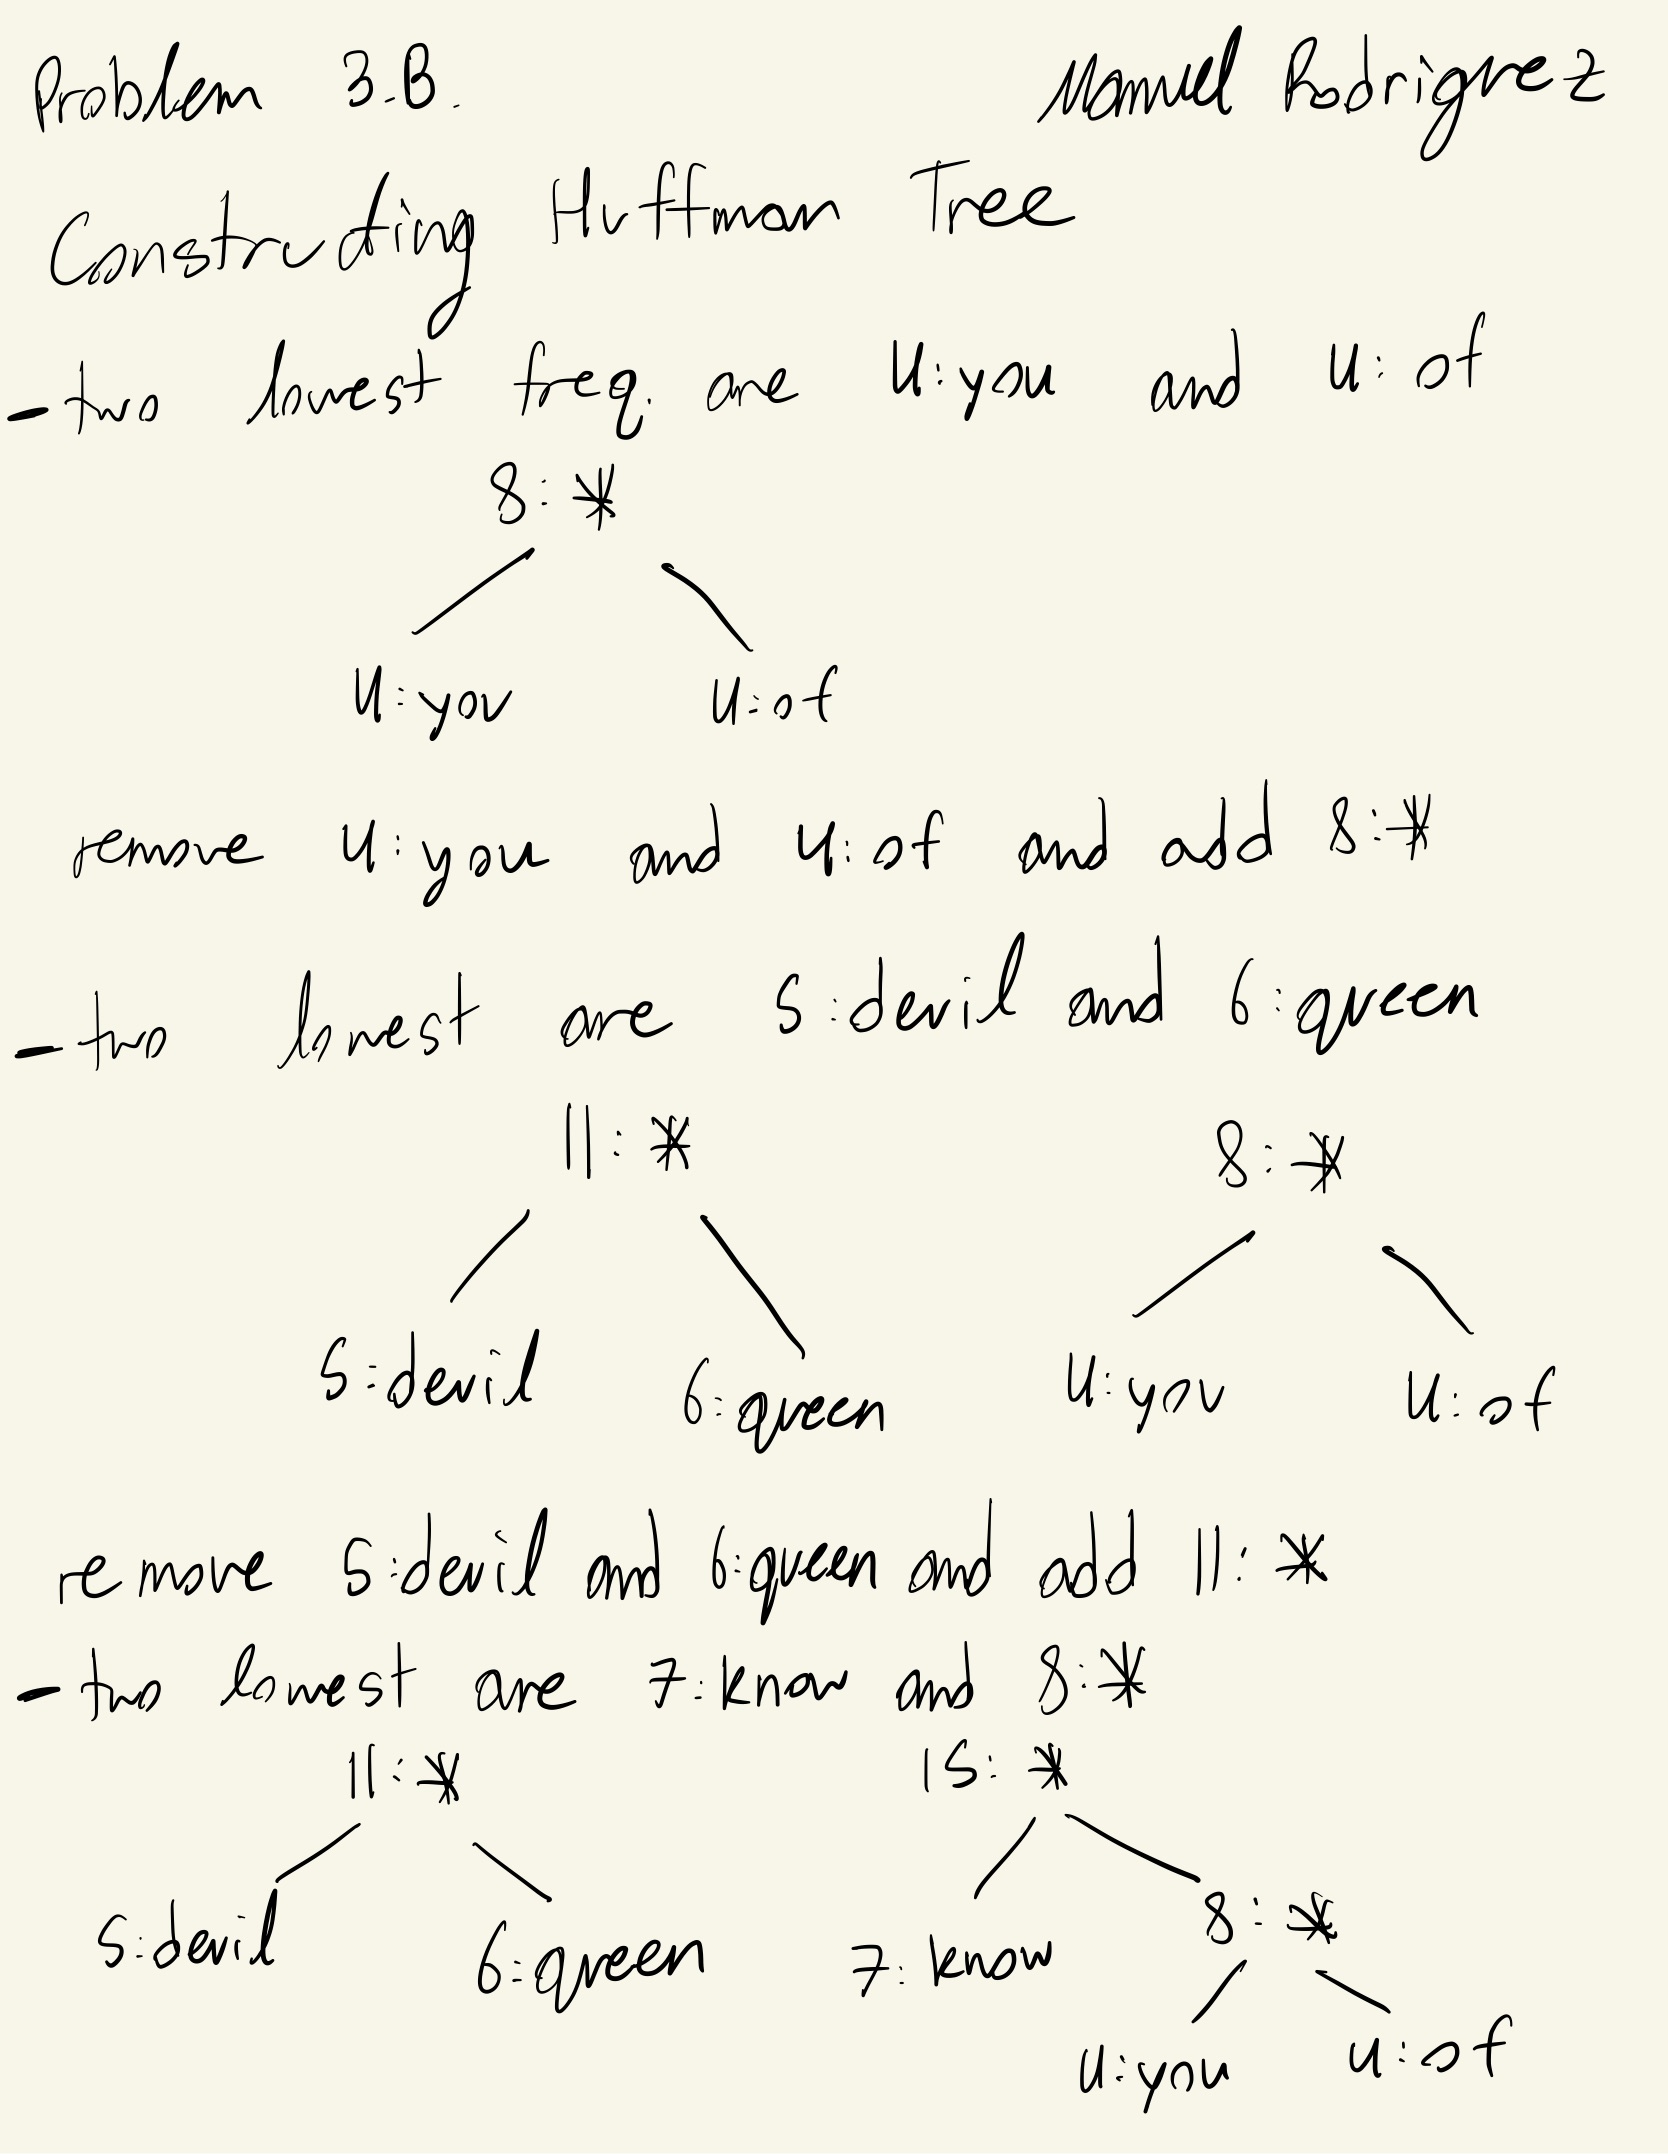 Problem 3.B. Manuel Rodriguez
Constructing Huffman Tree
- two lowest freq. are 4:you and 4:of
8:*
4:you 4:of
remove 4:you and 4:of and add 8:*
- two lowest are 5:devil and 6:queen
11:* 8:*
5:devil 6:queen 4:you 4:of
remove 5:devil and 6:queen and add 11:*
- two lowest are 7:know and 8:*
11:* 15:*
5:devil 6:queen 7:know 8:*
4:you 4:of